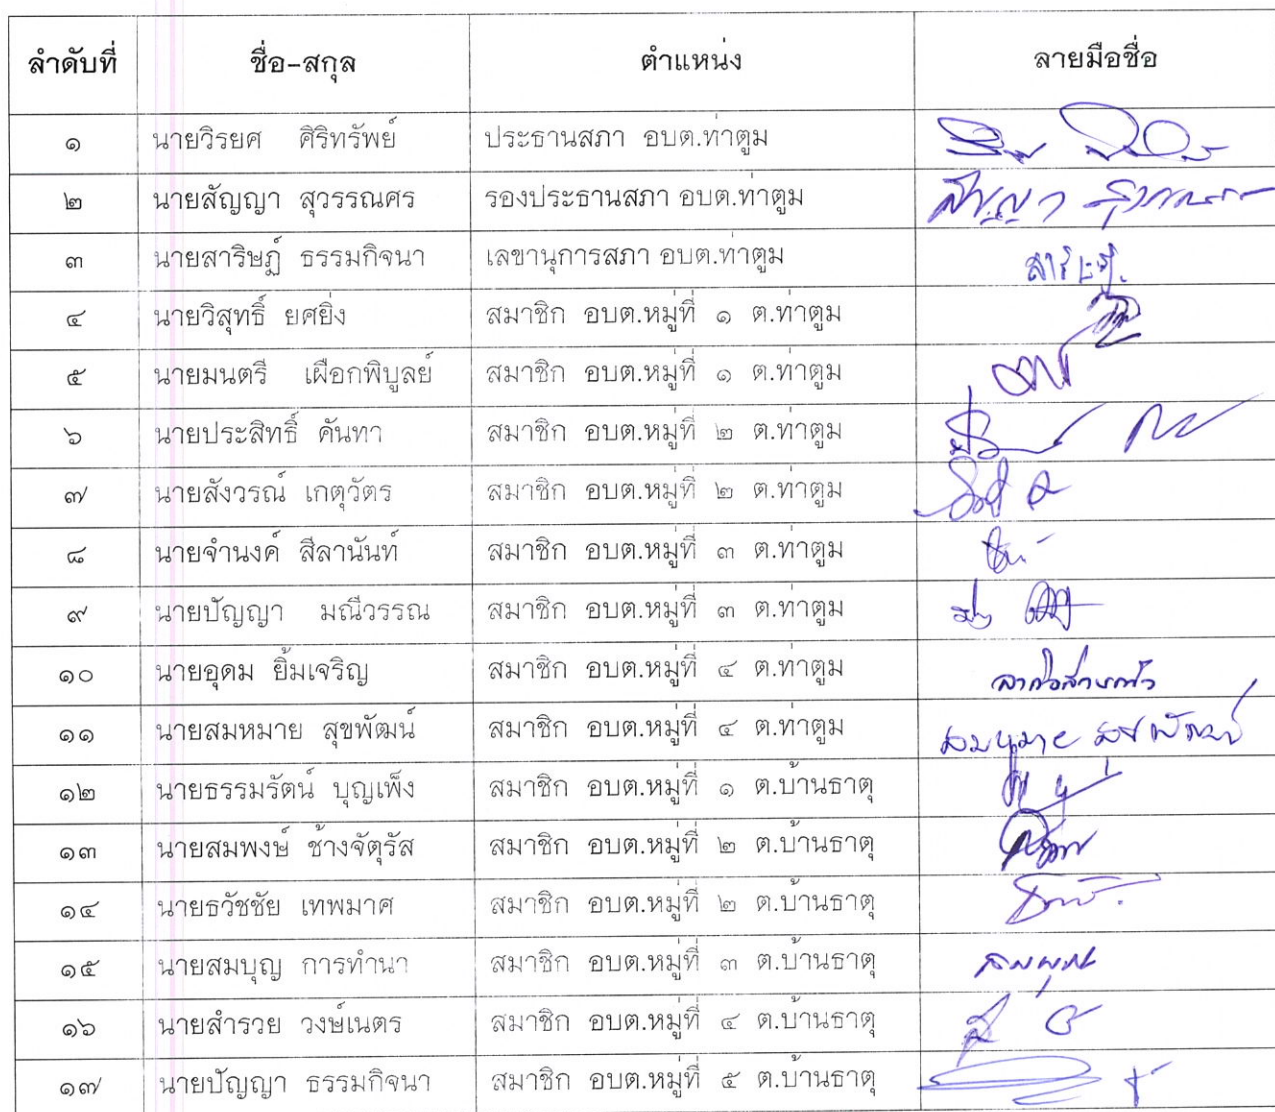 ลำดับที่ ชื่อ-สกุล ตำแหน่ง ลายมือชื่อ
๑ นายวิรยศ ศิริทรัพย์ ประธานสภา อบต.ท่าตูม
๒ นายสัญญา สุวรรณศร รองประธานสภา อบต.ท่าตูม สัญญา
๓ นายสาริษฏ์ ธรรมกิจนา เลขานุการสภา อบต.ท่าตูม
๔ นายวิสุทธิ์ ยศยิ่ง สมาชิก อบต.หมู่ที่ ๑ ต.ท่าตูม
๕ นายมนตรี เผือกพิบูลย์ สมาชิก อบต.หมู่ที่ ๑ ต.ท่าตูม
๖ นายประสิทธิ์ คันทา สมาชิก อบต.หมู่ที่ ๒ ต.ท่าตูม
๗ นายสังวรณ์ เกตุวัตร สมาชิก อบต.หมู่ที่ ๒ ต.ท่าตูม
๘ นายจำนงค์ สีลานันท์ สมาชิก อบต.หมู่ที่ ๓ ต.ท่าตูม
๙ นายปัญญา มณีวรรณ สมาชิก อบต.หมู่ที่ ๓ ต.ท่าตูม
๑๐ นายอุดม ยิ้มเจริญ สมาชิก อบต.หมู่ที่ ๔ ต.ท่าตูม
๑๑ นายสมหมาย สุขพัฒน์ สมาชิก อบต.หมู่ที่ ๔ ต.ท่าตูม สมหมาย สุขพัฒน์
๑๒ นายธรรมรัตน์ บุญเพ็ง สมาชิก อบต.หมู่ที่ ๑ ต.บ้านธาตุ
๑๓ นายสมพงษ์ ช้างจัตุรัส สมาชิก อบต.หมู่ที่ ๒ ต.บ้านธาตุ
๑๔ นายธวัชชัย เทพมาศ สมาชิก อบต.หมู่ที่ ๒ ต.บ้านธาตุ
๑๕ นายสมบุญ การทำนา สมาชิก อบต.หมู่ที่ ๓ ต.บ้านธาตุ สมบุญ
๑๖ นายสำรวย วงษ์เนตร สมาชิก อบต.หมู่ที่ ๔ ต.บ้านธาตุ
๑๗ นายปัญญา ธรรมกิจนา สมาชิก อบต.หมู่ที่ ๕ ต.บ้านธาตุ